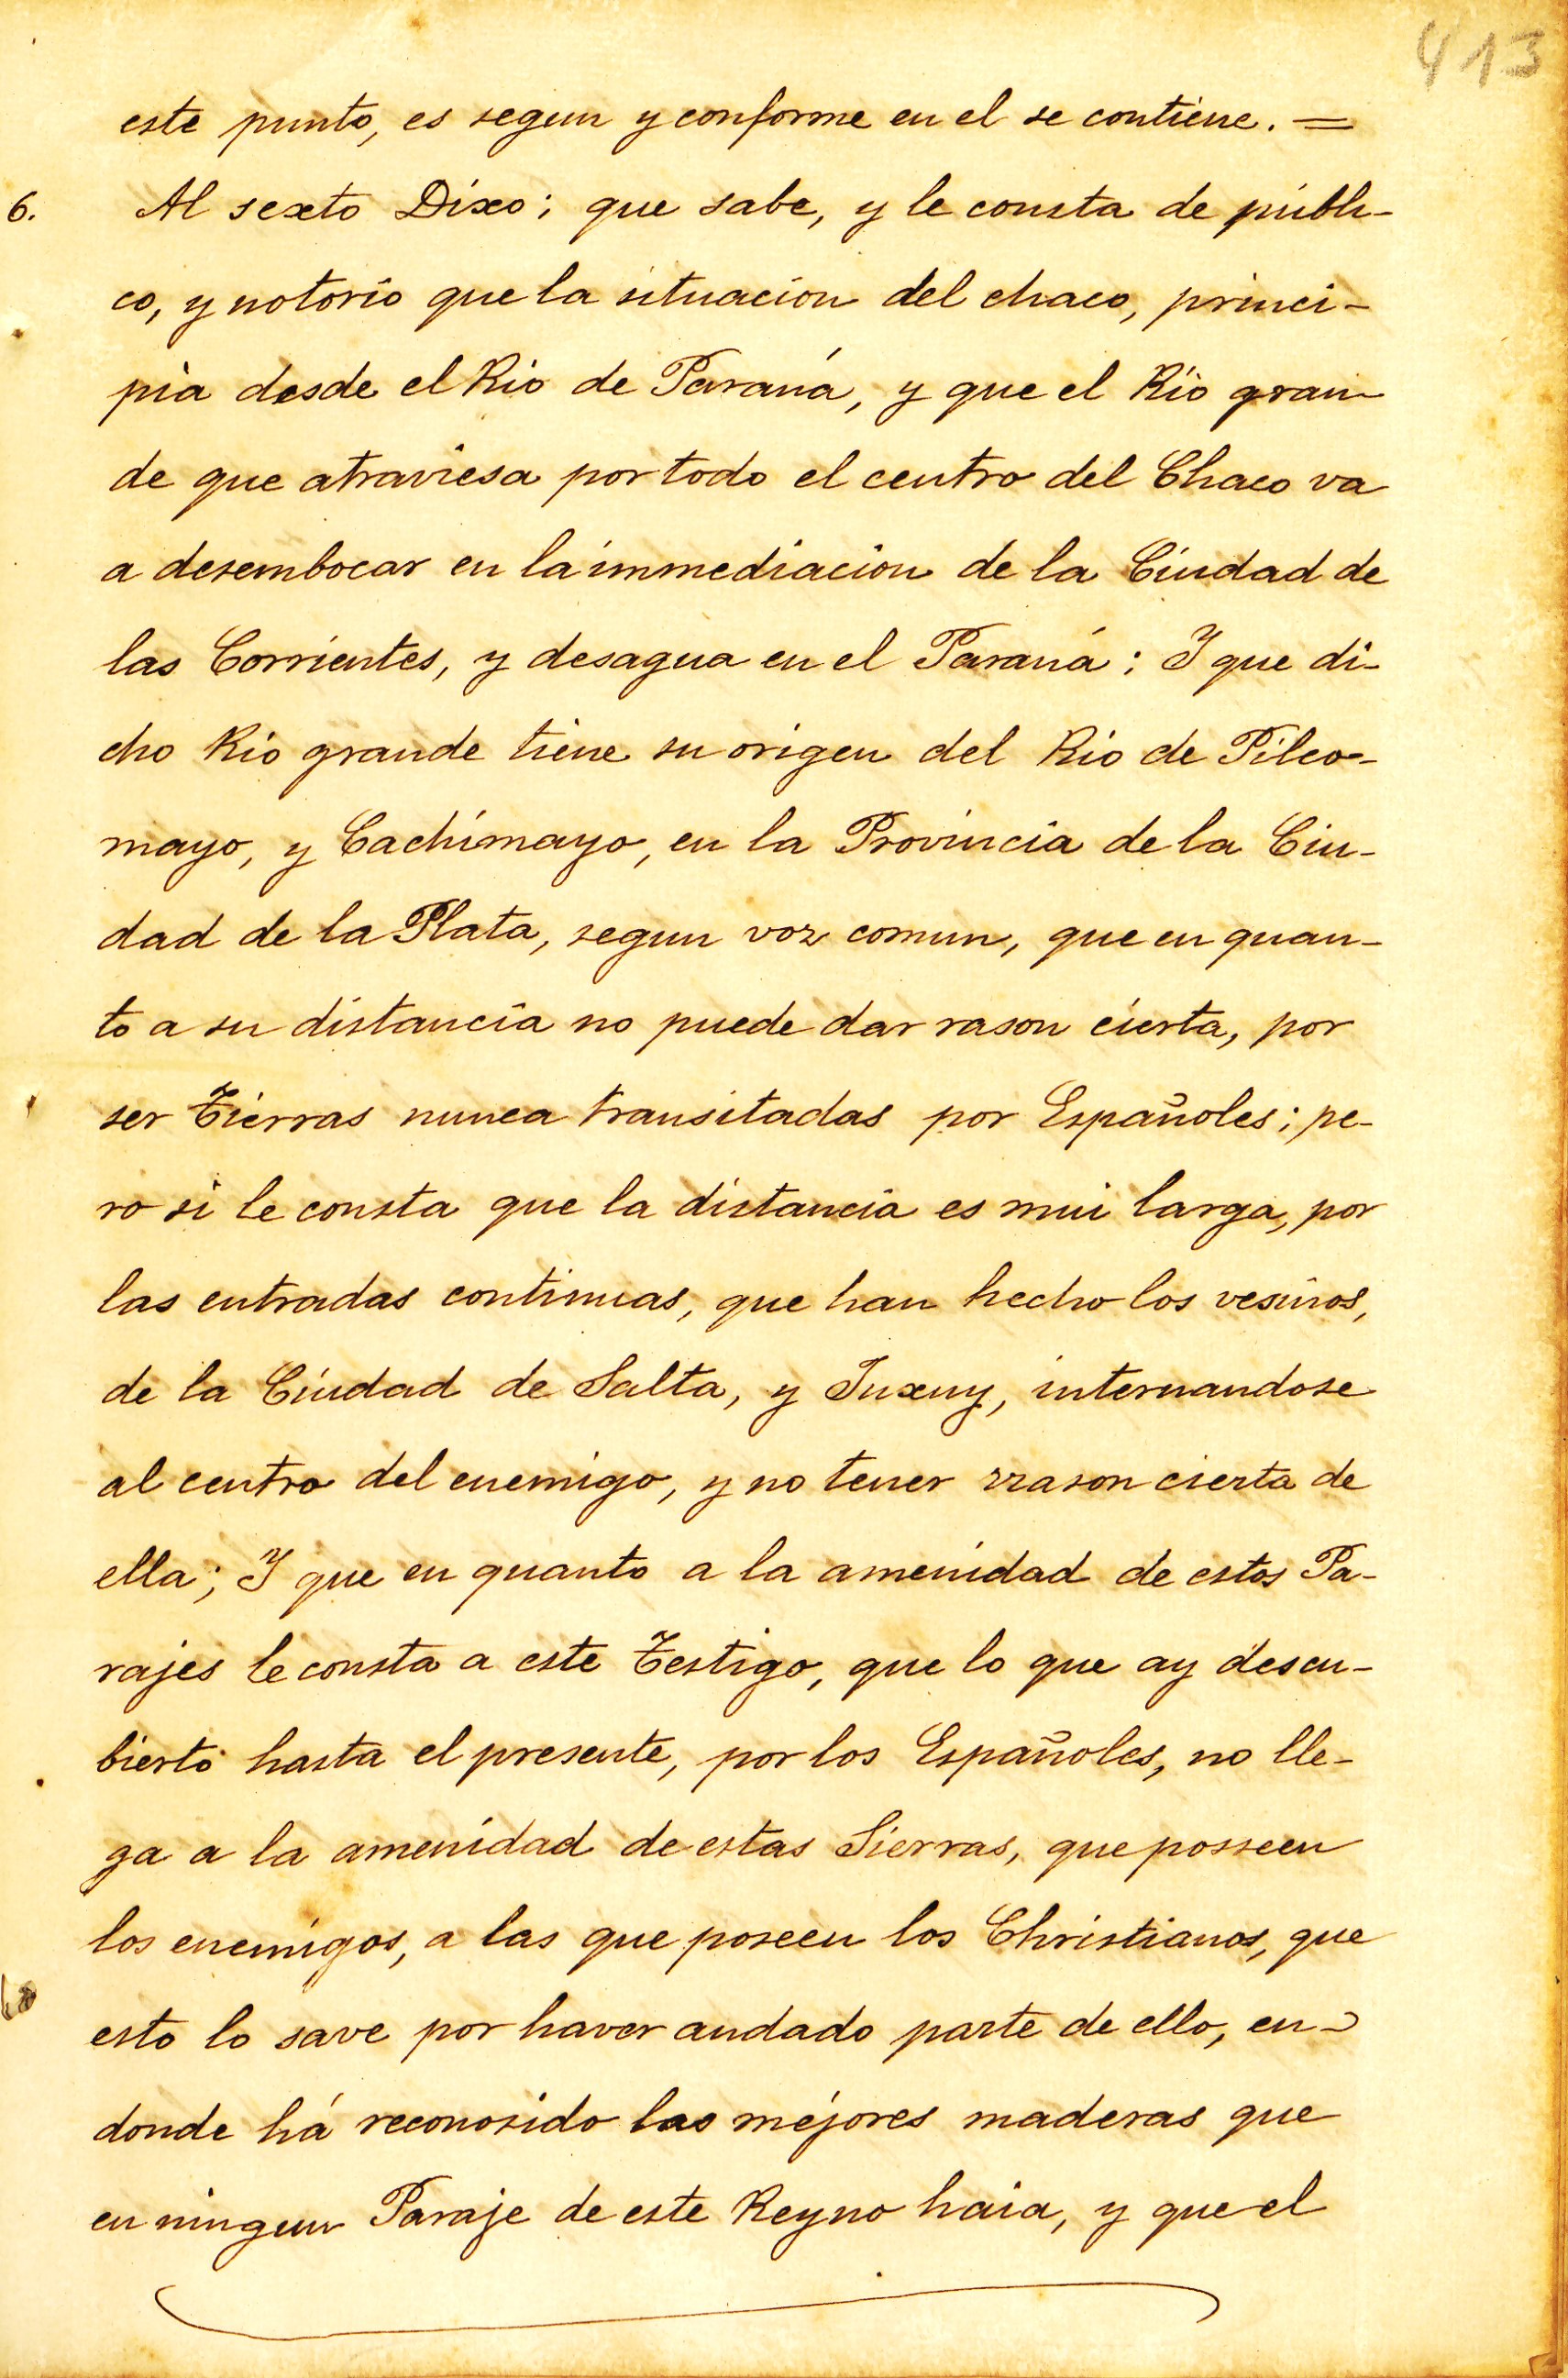 413
este punto, es segun y conforme en el se contiene. =
6. Al sexto Dixo; que sabe, y le consta de públi-
co, y notorio que la situacion del chaco, princi-
pia desde el Rio de Paraná, y que el Rio gran-
de que atraviesa por todo el centro del Chaco va
a desembocar en la immediacion de la Ciudad de
las Corrientes, y desagua en el Paraná; Y que di-
cho Rio grande tiene su origen del Rio de Pilco-
mayo, y Cachimayo, en la Provincia de la Ciu-
dad de la Plata, segun voz comun, que en quan-
to a su distancia no puede dar rason cierta, por
ser Tierras nunca transitadas por Españoles; pe-
ro si le consta que la distancia es mui larga, por
las entradas continuas, que han hecho los vesinos,
de la Ciudad de Salta, y Juxuy, internandose
al centro del enemigo, y no tener rrason cierta de
ella; Y que en quanto a la amenidad de estos Pa-
rajes le consta a este Testigo, que lo que ay descu-
bierto hasta el presente, por los Españoles, no lle-
ga a la amenidad de estas Sierras, que posseen
los enemigos, a las que poseen los Christianos, que
esto lo save por haver andado parte de ello, en-
donde há reconosido las mejores maderas que
en ningun Paraje de este Reyno haia, y que el